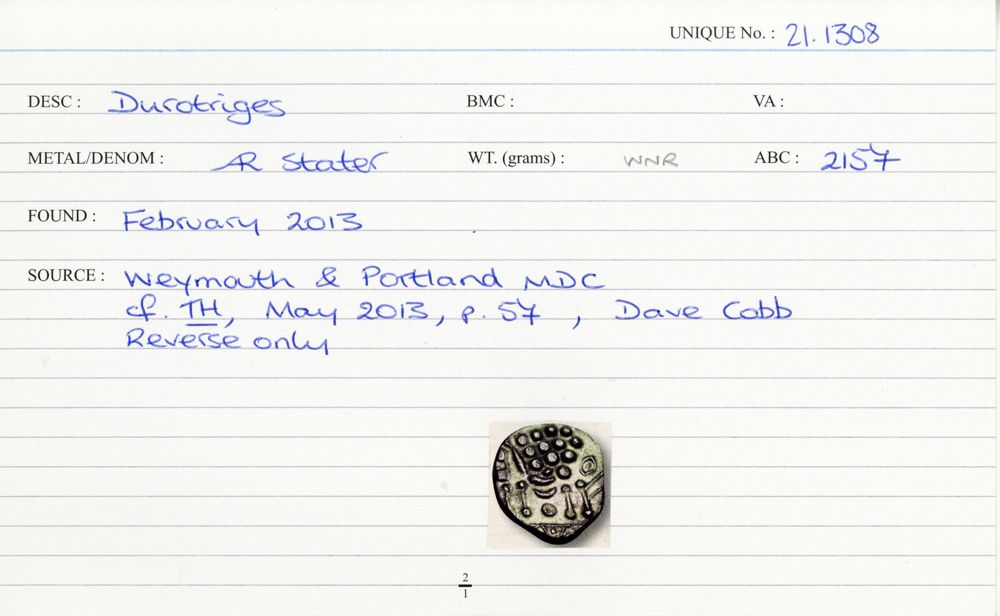 UNIQUE No. : 21.1308
DESC : Durotriges BMC : VA :
METAL/DENOM : AR Stater WT. (grams) : WNR ABC : 2157
FOUND : February 2013
SOURCE : Weymouth & Portland MDC
cf. TH, May 2013, p. 57, Dave Cobb
Reverse only
2
1